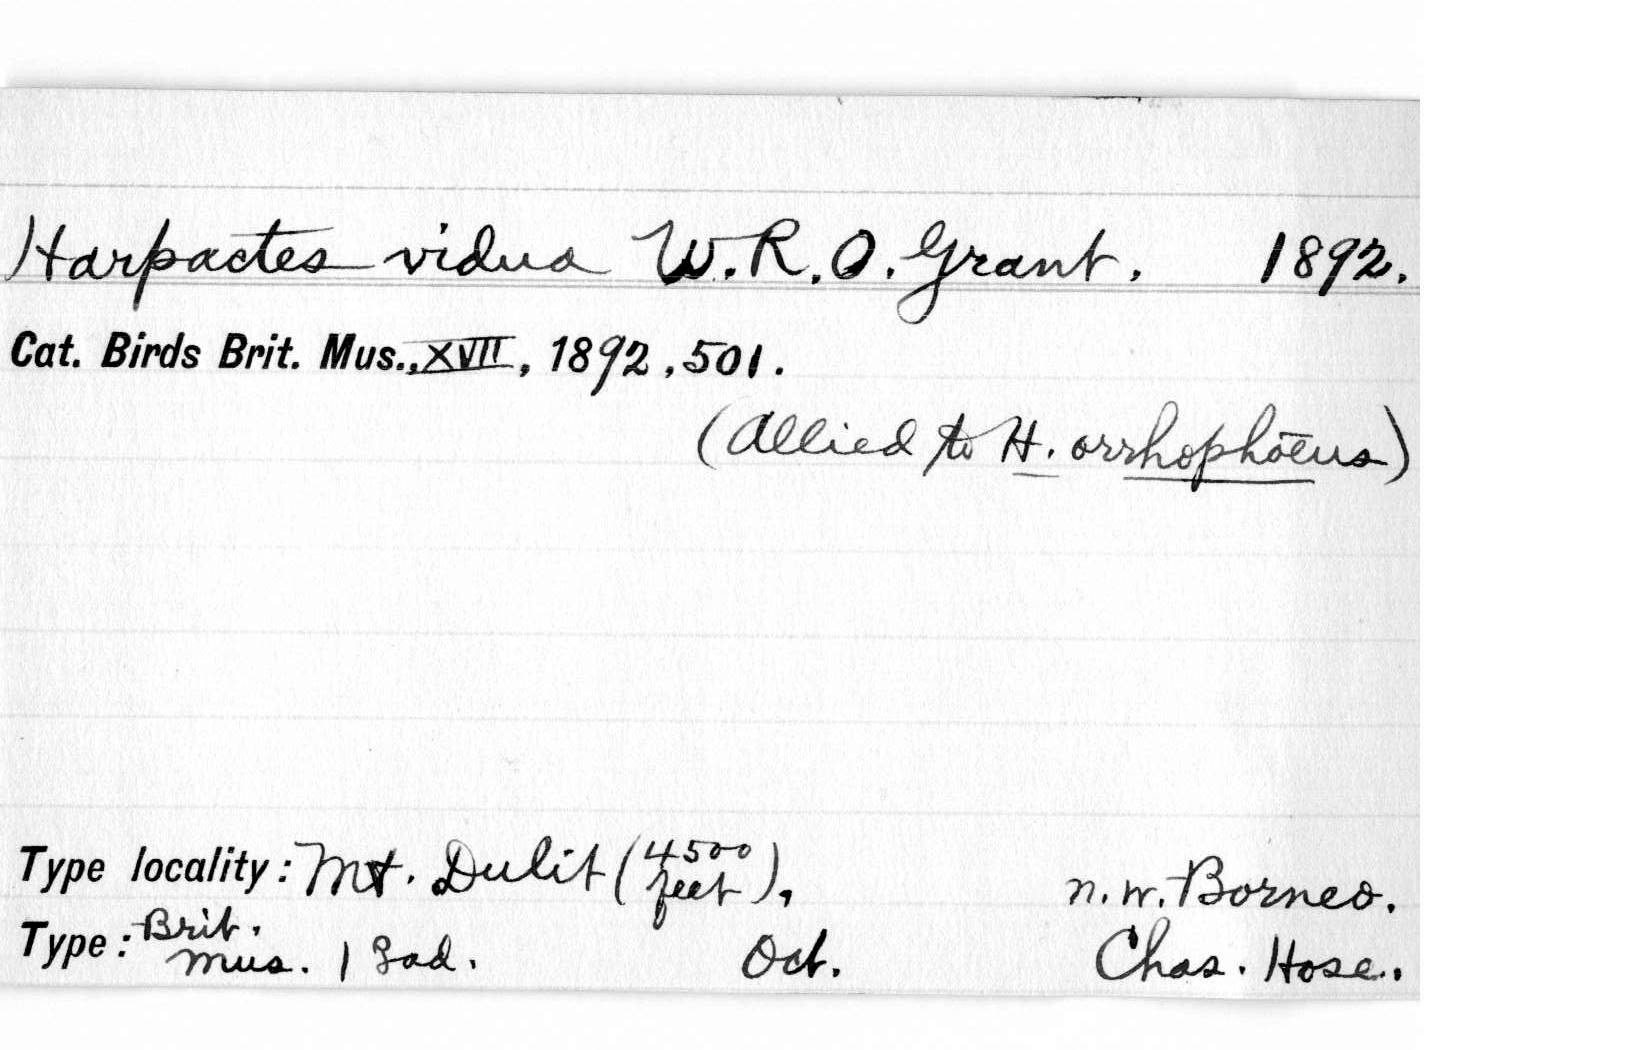 Harpactes vidua W.R.O. Grant. 1892.
Cat. Birds Brit. Mus., XVII, 1892, 501.
(Allied to H. orrhophaeus)
Type locality: Mt. Dulit (4500 feet), n.w. Borneo.
Type: Brit. Mus. 1 ad. Oct. Chas. Hose.